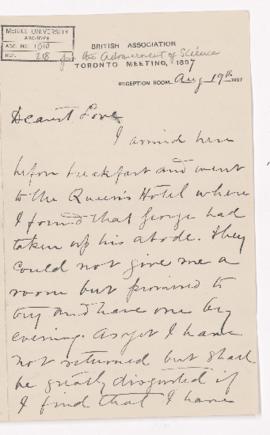 McGILL UNIVERSITY
ARCHIVES
ACC. NO. 1010
REF. 218
BRITISH ASSOCIATION
for the Advancement of Science
TORONTO MEETING, 1897
RECEPTION ROOM, Aug 19th 1897
Dearest Love
I arrived here
before breakfast and went
to the Queen's Hotel where
I found that George had
taken up his abode. They
could not give me a
room but promised to
try and have one by
evening. As yet I have
not returned but shall
be greatly disgusted if
I find that I have